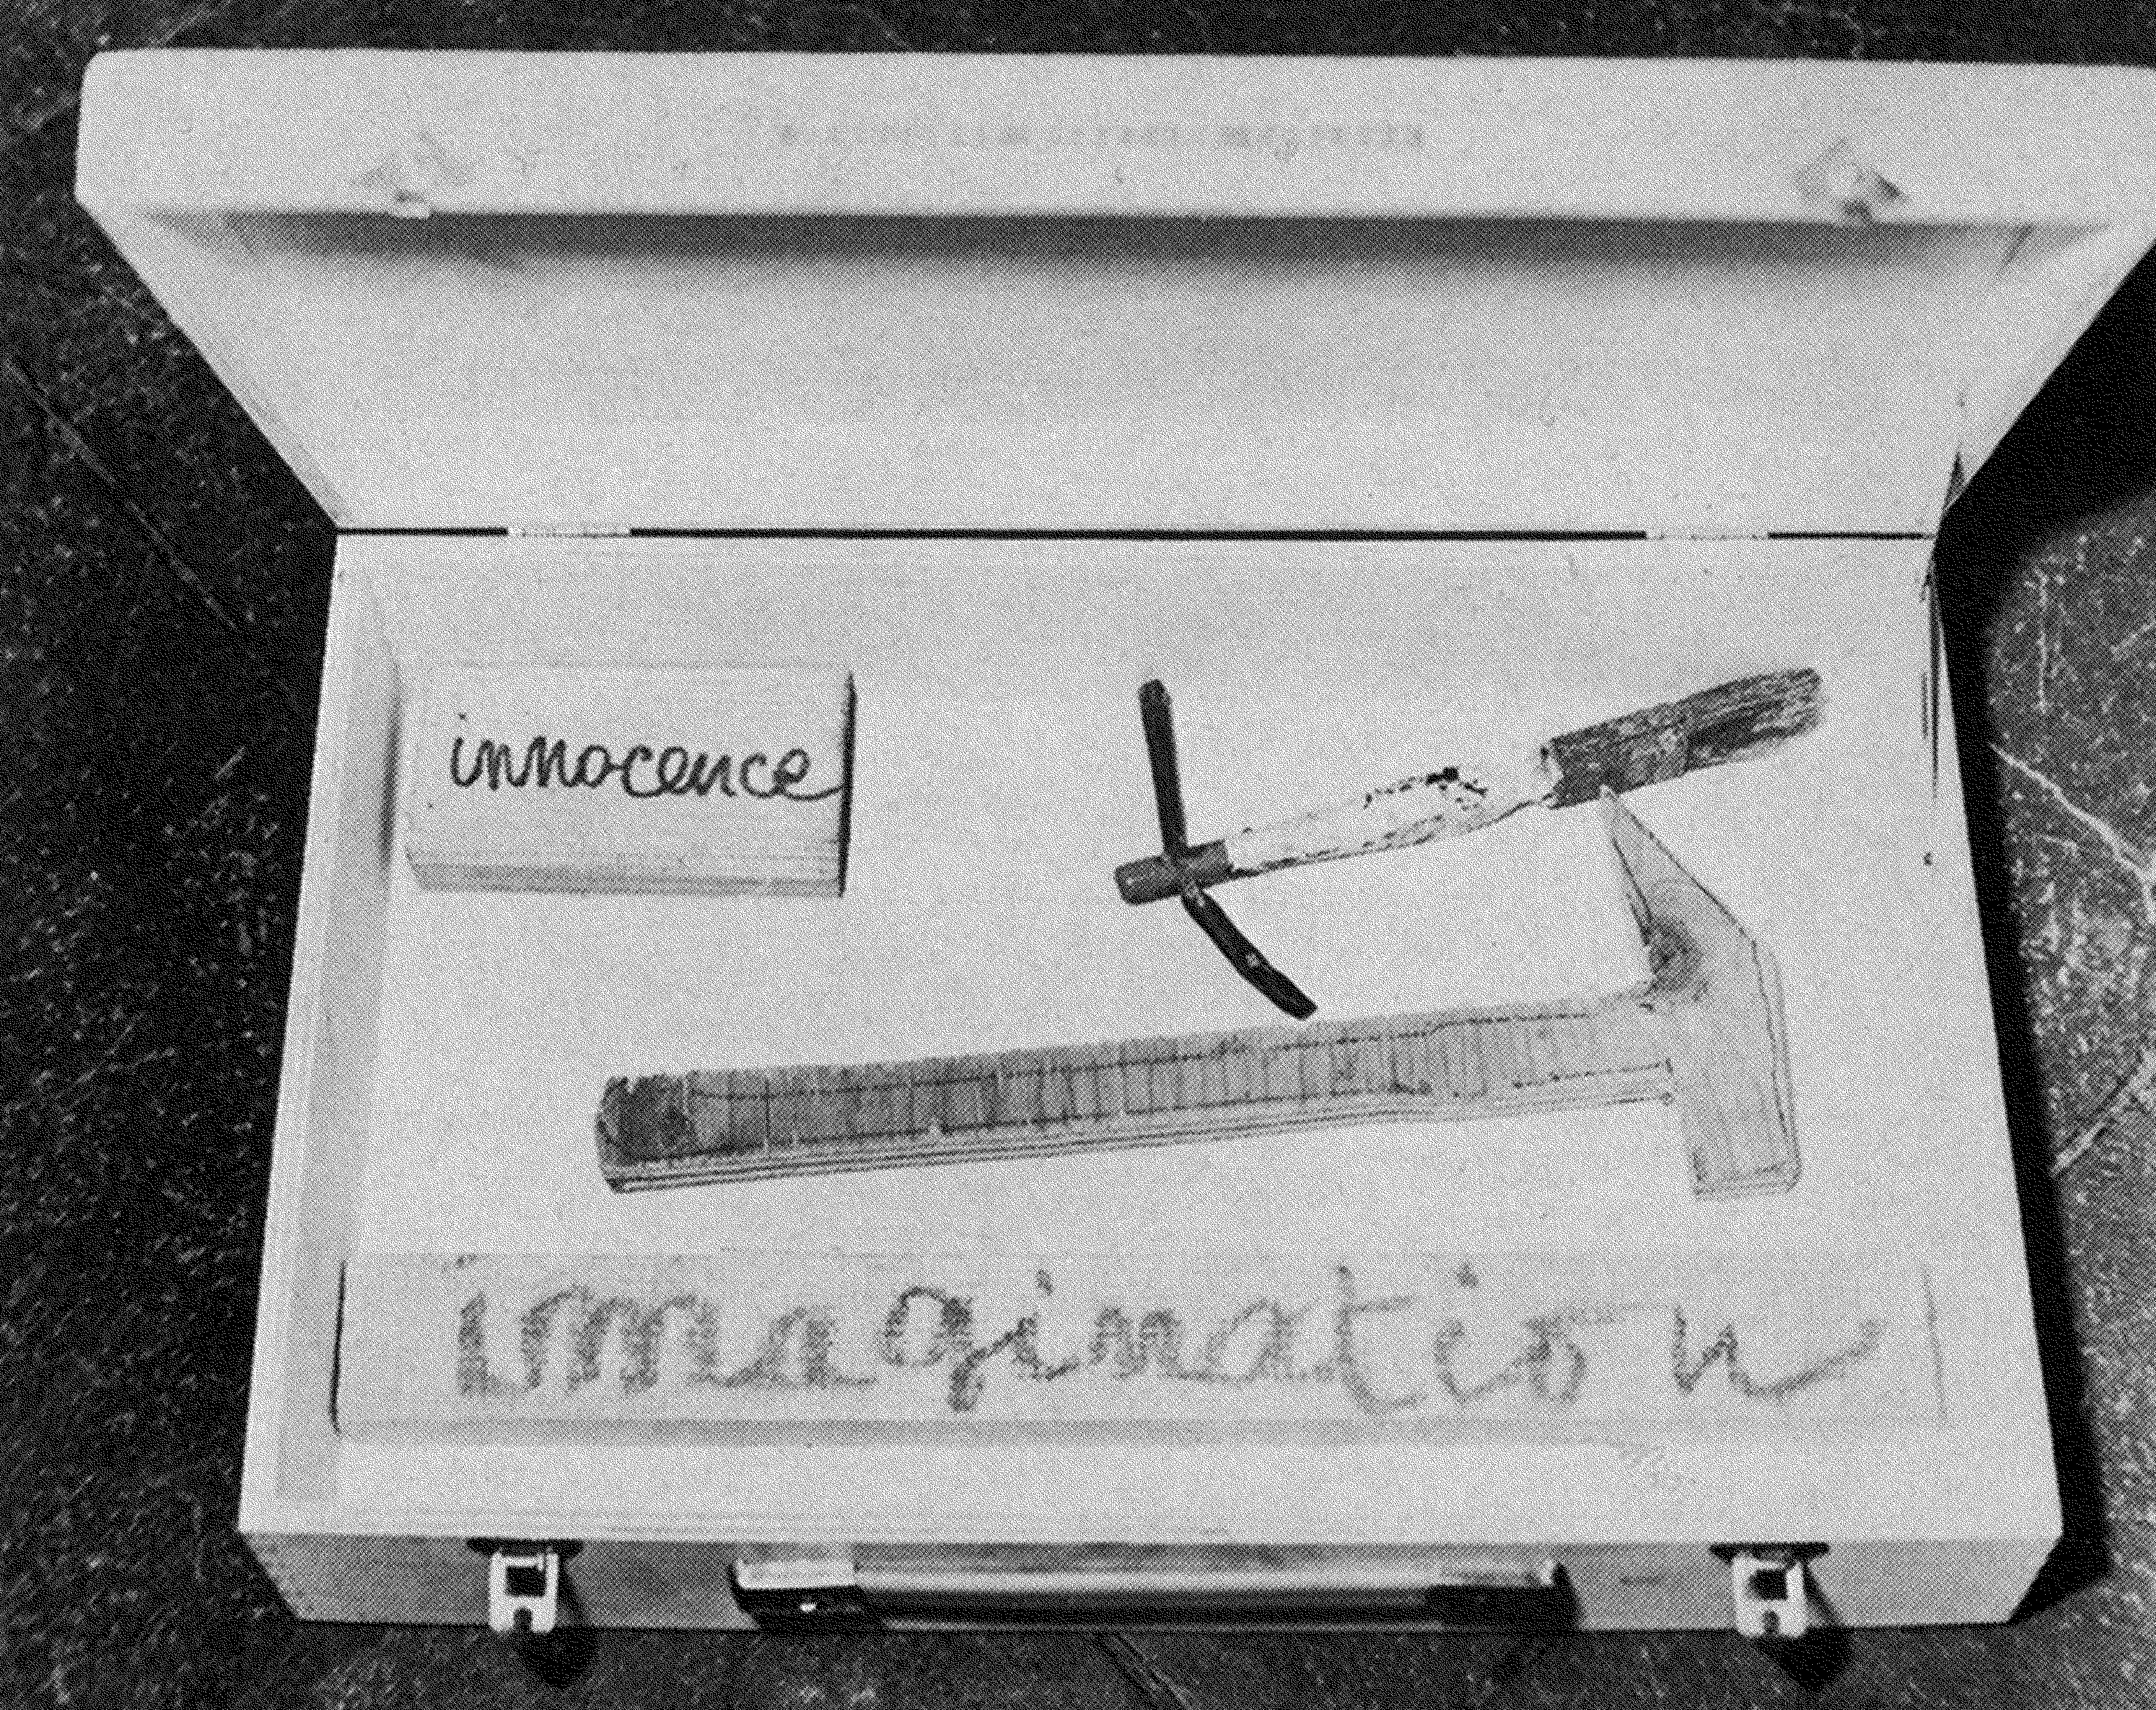 innocence
imagination